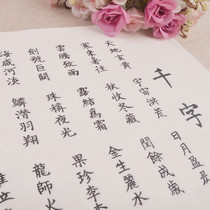 千字
天地玄黃
宇宙洪荒
日月盈
寒來暑往
秋收冬藏
閏餘成歲
雲騰致雨
露結為霜
金生麗水
劍號巨闕
珠稱夜光
果珍李
海鹹河淡
鱗潛羽翔
龍師火